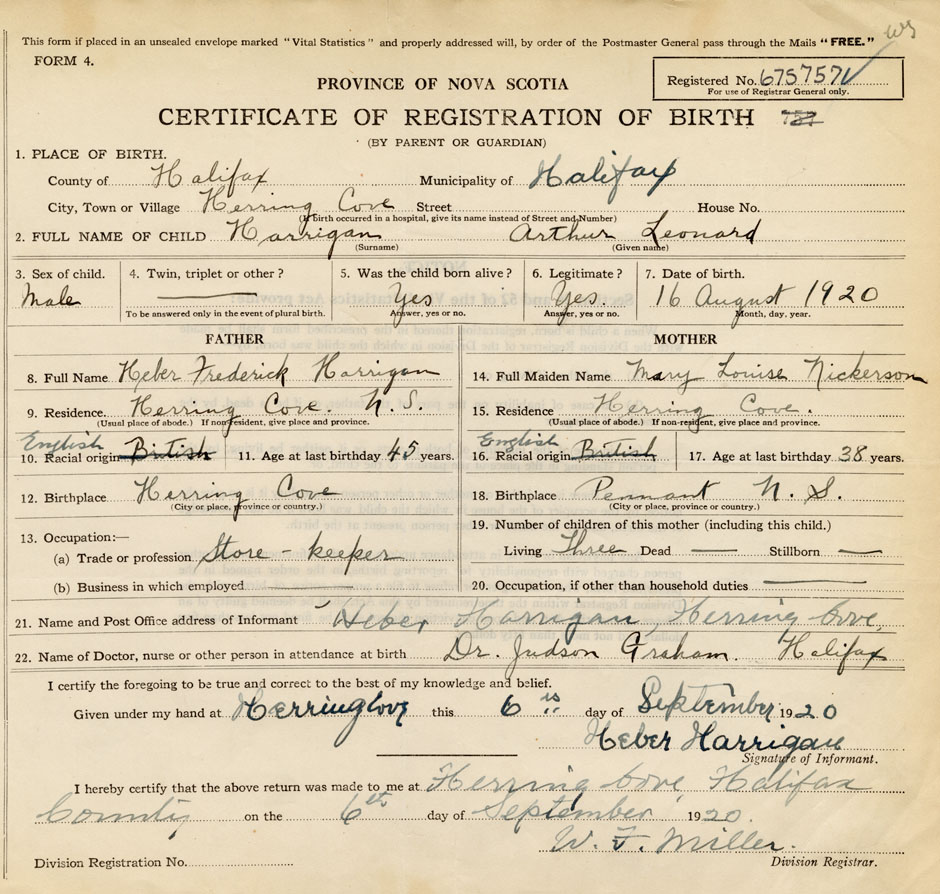 This form if placed in an unsealed envelope marked "Vital Statistics" and properly addressed will, by order of the Postmaster General pass through the Mails "FREE."
FORM 4.
Registered No. 6757571
For use of Registrar General only.
PROVINCE OF NOVA SCOTIA
CERTIFICATE OF REGISTRATION OF BIRTH
(BY PARENT OR GUARDIAN)
1. PLACE OF BIRTH.
County of Halifax Municipality of Halifax
City, Town or Village Herring Cove Street House No.
(If birth occurred in a hospital, give its name instead of Street and Number)
2. FULL NAME OF CHILD Harrigan Arthur Leonard
(Surname) (Given name)
3. Sex of child. 4. Twin, triplet or other? 5. Was the child born alive? 6. Legitimate? 7. Date of birth.
Male Yes Yes. 16 August 1920
To be answered only in the event of plural birth. Answer, yes or no. Answer, yes or no. Month, day, year.
FATHER MOTHER
8. Full Name Heber Frederick Harrigan 14. Full Maiden Name Mary Louise Nickerson
9. Residence. Herring Cove. N.S. 15. Residence Herring Cove.
(Usual place of abode.) If non-resident, give place and province. (Usual place of abode.) If non-resident, give place and province.
English English
10. Racial origin British 11. Age at last birthday 45 years. 16. Racial origin British 17. Age at last birthday 38 years.
12. Birthplace Herring Cove 18. Birthplace Pennant N.S.
(City or place, province or country.) (City or place, province or country.)
13. Occupation:— 19. Number of children of this mother (including this child.)
(a) Trade or profession Store - keeper Living Three Dead — Stillborn —
(b) Business in which employed 20. Occupation, if other than household duties
21. Name and Post Office address of Informant Heber Harrigan, Herring Cove,
22. Name of Doctor, nurse or other person in attendance at birth Dr. Judson Graham. Halifax
I certify the foregoing to be true and correct to the best of my knowledge and belief.
Given under my hand at Herring Cove this 6 day of September 1920
Heber Harrigan
Signature of Informant.
I hereby certify that the above return was made to me at Herring Cove, Halifax
County on the 6th day of September 1920.
W. F. Miller.
Division Registration No. Division Registrar.